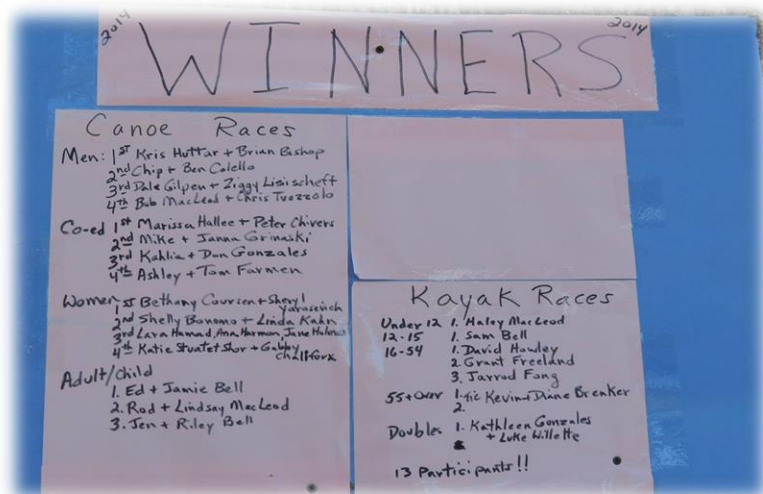 2014
2014
WINNERS
Canoe Races
Men: 1st Kris Huttar + Brian Bishop
2nd Chip + Ben Colello
3rd Dale Gilpen + Ziggy
4th Bob MacLeod + Chris Tuozzolo
Co-ed 1st Marissa Hallee + Peter Chivers
2nd Mike + Janna Grinaski
3rd Kahlia + Don Gonzales
4th Ashley + Tom Farmen
Women 1st Bethany Coursen + Sheryl
Yarosevich
2nd Shelly Bonomo + Linda Kahn
3rd Lara Hamad, Ana Harmon, Jane
4th Katie + Gabby
Adult/Child
1. Ed + Jamie Bell
2. Rod + Lindsay MacLeod
3. Jen + Riley Bell
Kayak Races
Under 12 1. Haley MacLeod
12-15 1. Sam Bell
16-54 1. David Howley
2. Grant Freeland
3. Jarrod Fong
55 + Over 1. tie Kevin + Diane Brenker
2.
Doubles 1. Kathleen Gonzales
+ Luke Willette
13 Participants!!